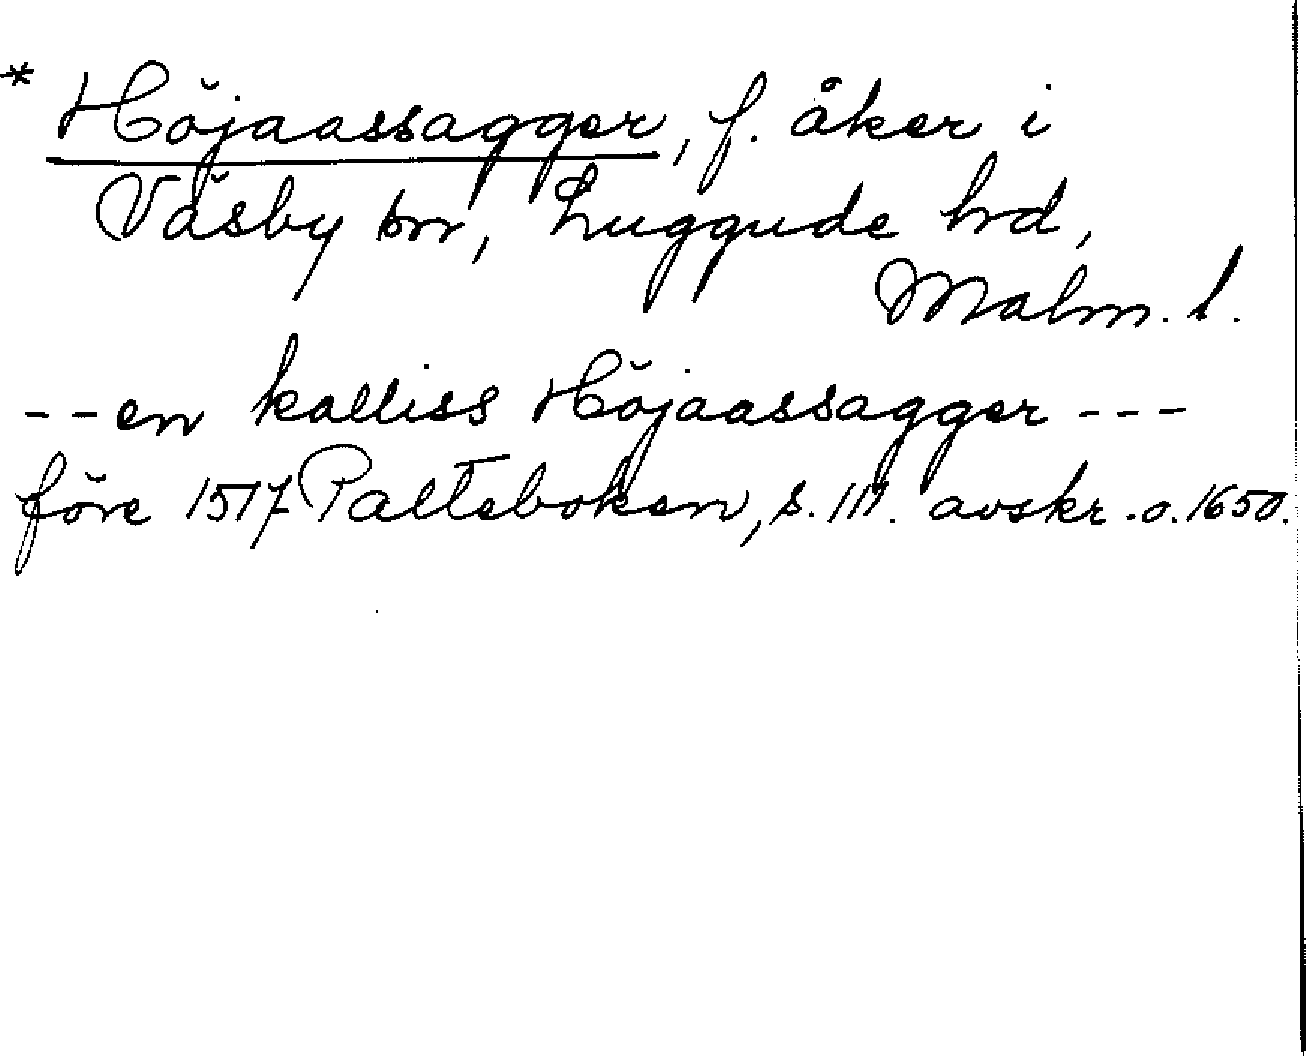 * Höjaassagger, f. åker i
Väsby sn, Luggude hd,
Malm. l.
--en kalliss Höjaassagger ---
före 1517 Palteboken, s. 111. avskr. o. 1650.